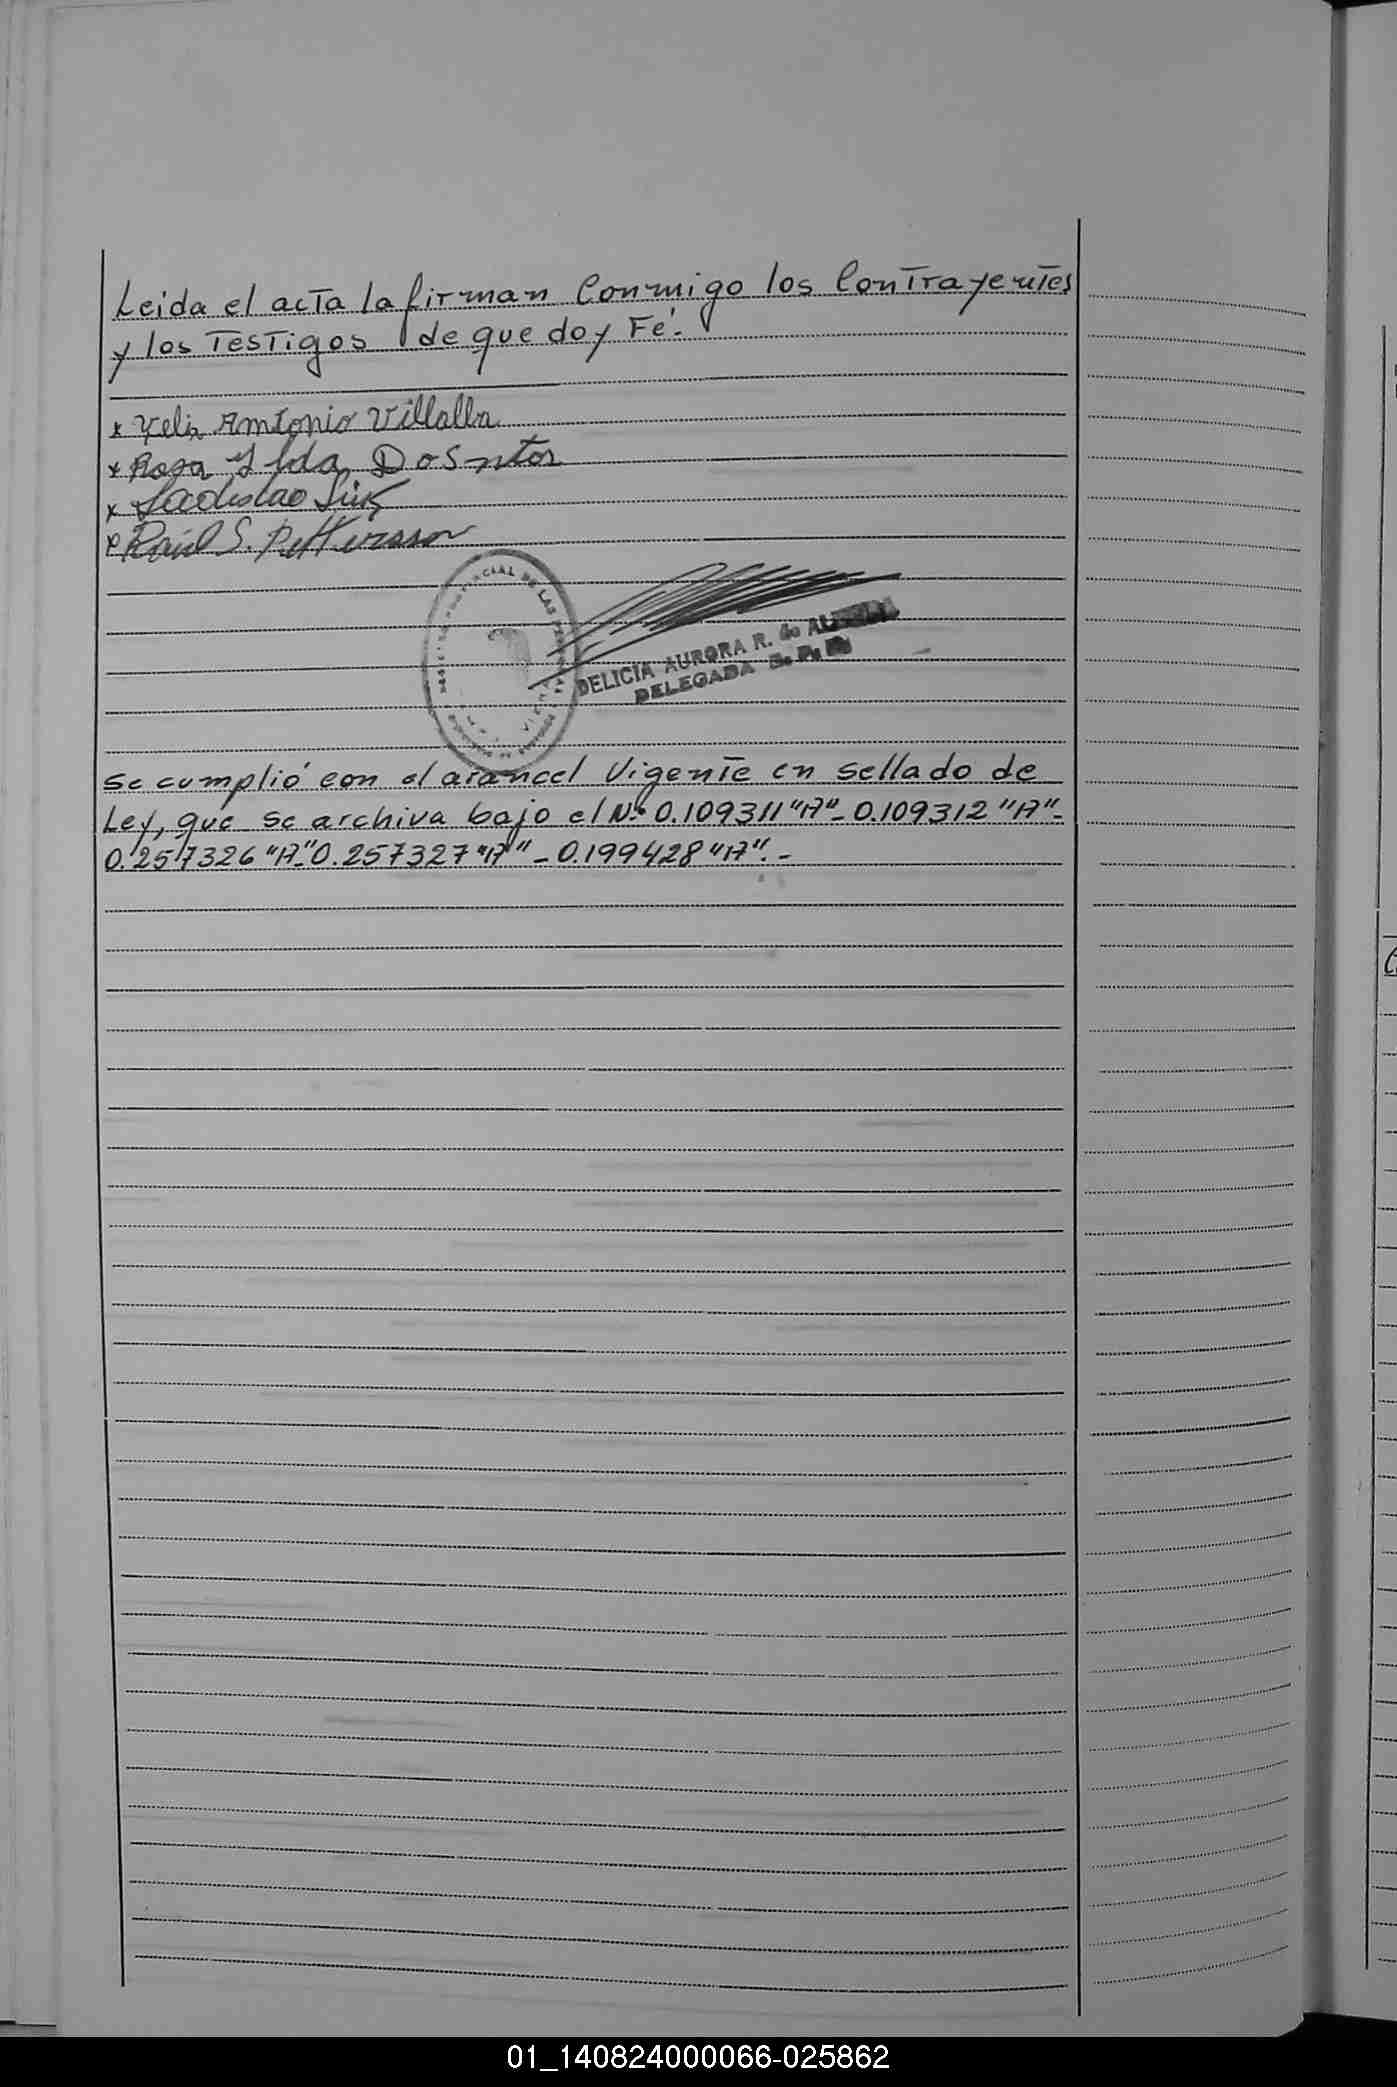 Leida el acta la firman Conmigo los Contrayentes
y los Testigos de que doy Fé.
x Antonio Villalba
x Rosa Ilda DoSntos
x Ladislao
x Raúl S. Pettersson
DE LAS
DELICIA AURORA R. de
DELEGADA
se cumplió con el arancel Vigente en sellado de
Ley, que se archiva bajo el Nº 0.109311 "A"- 0.109312 "A"-
0.257326 "A"-"0.257327 "A" - 0.199428 "A".-
01_140824000066-025862